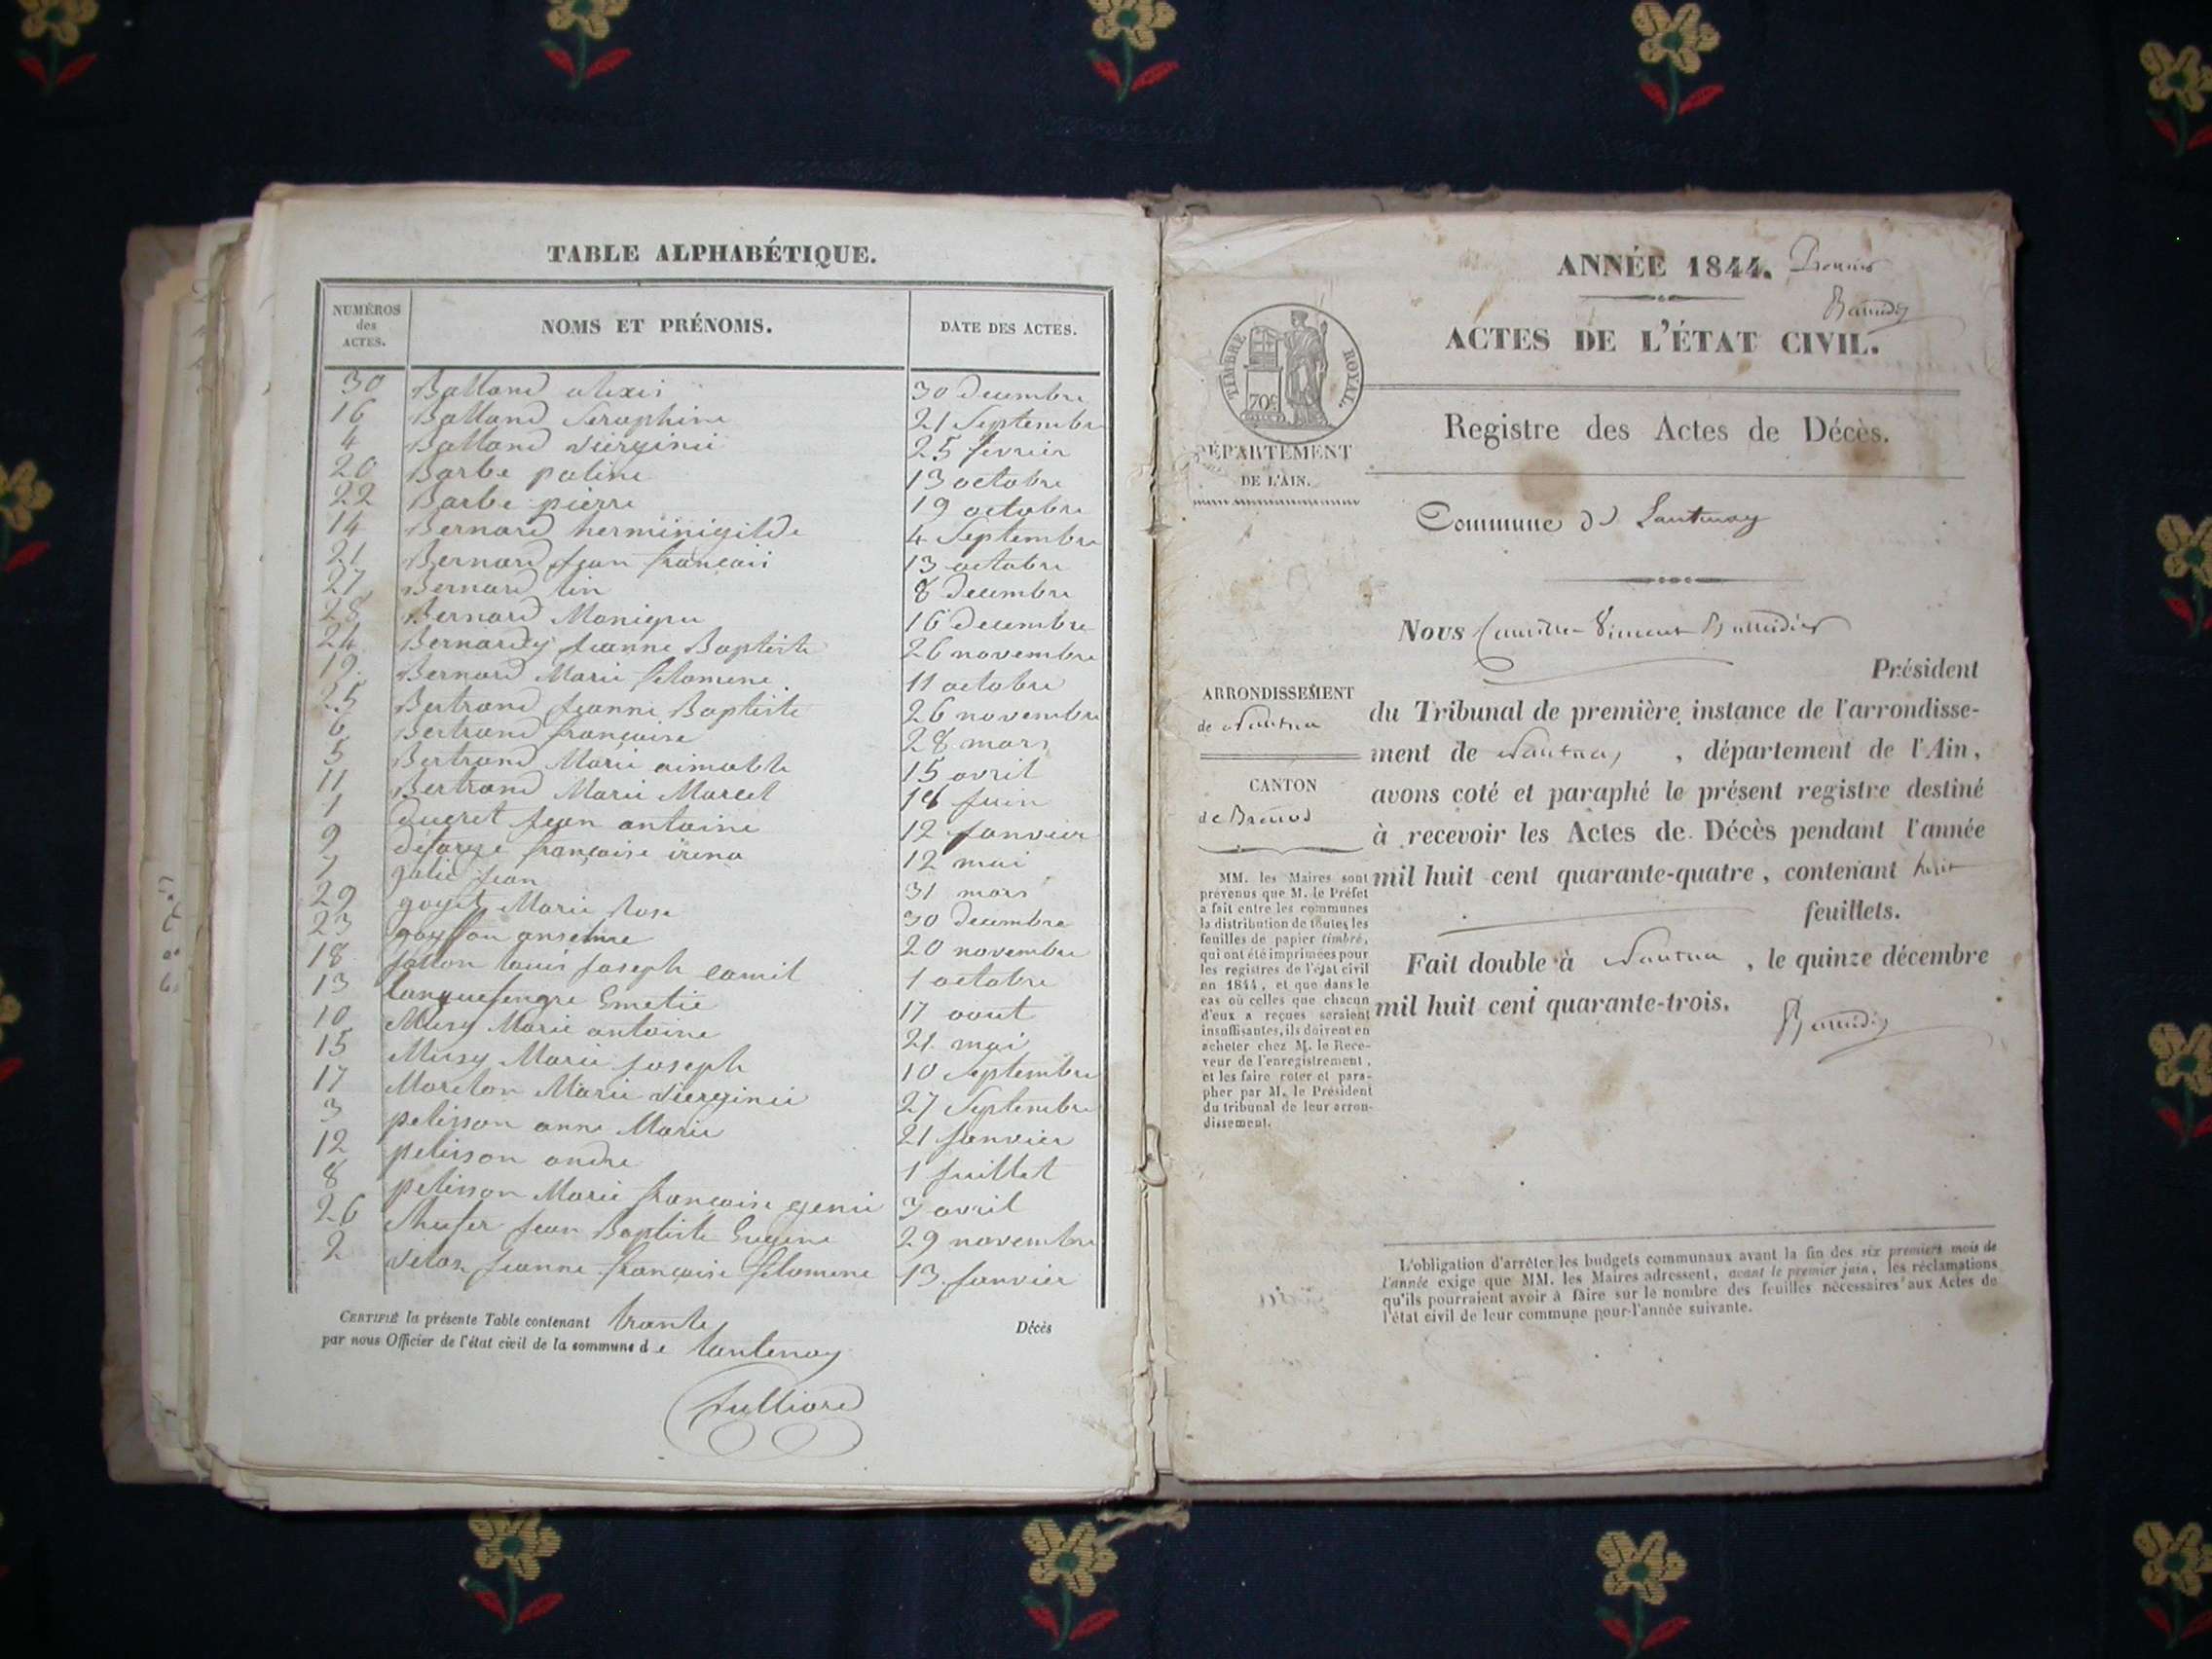 TABLE ALPHABÉTIQUE.
NUMÉROS des ACTES. NOMS ET PRÉNOMS. DATE DES ACTES.
30 Balland alexis 30 decembre
16 Balland Seraphine 21 Septembre
4 Balland vierginie 25 fevrier
20 Barbe poline 13 octobre
22 Barbe pierre 19 octobre
14 Bernard herminigilde 4 Septembre
21 Bernard jean françois 13 octobre
27 Bernard lin 8 decembre
28 Bernard 16 decembre
24 Bernardy jeanne Baptiste 26 novembre
19 Bernard Marie filomene 11 octobre
25 Bertrand jeanne Baptiste 26 novembre
6 Bertrand françoise 28 mars
5 Bertrand Marie aimable 15 avril
11 Bertrand Marie Marcel 18 juin
1 jean antoine 12 janvier
9 françoise irena 12 mai
7 jean 31 mars
29 goyet Marie Rose 30 decembre
23 anselme 20 novembre
18 louis joseph camil 1 octobre
13 Emelie 17 aout
10 Musy Marie antoine 21 mai
15 Musy Marie joseph 10 Septembre
17 Moreton Marie vierginie 27 Septembre
3 pelisson anne Marie 21 janvier
12 pelisson andre 1 juillet
8 pelisson Marie françoise ejenie 3 avril
26 jean Baptiste Eugine 29 novembre
2 jeanne françoise filomene 13 janvier
CERTIFIÉ la présente Table contenant trante Décès
par nous Officier de l'état civil de la commune de lantenay
Julliard
ANNÉE 1844. Premier
Baudin
ACTES DE L'ÉTAT CIVIL.
TIMBRE ROYAL.
70c
DÉPARTEMENT
DE L'AIN.
Registre des Actes de Décès.
Commune de Lantenay
Nous
Président
ARRONDISSEMENT
de Nantua
CANTON
de Brenod
du Tribunal de première instance de l'arrondisse-
ment de Nantua, département de l'Ain,
avons coté et paraphé le présent registre destiné
à recevoir les Actes de Décès pendant l'année
mil huit cent quarante-quatre, contenant huit
feuillets.
Fait double à Nantua, le quinze décembre
mil huit cent quarante-trois.
MM. les Maires sont
prévenus que M. le Préfet
a fait entre les communes
la distribution de toutes les
feuilles de papier timbré,
qui ont été imprimées pour
les registres de l'état civil
en 1844, et que dans le
cas où celles que chacun
d'eux a reçues seraient
insuffisantes, ils doivent en
acheter chez M. le Rece-
veur de l'enregistrement,
et les faire coter et para-
pher par M. le Président
du tribunal de leur arron-
dissement.
L'obligation d'arrêter les budgets communaux avant la fin des six premiers mois de
l'année exige que MM. les Maires adressent, avant le premier juin, les réclamations
qu'ils pourraient avoir à faire sur le nombre des feuilles nécessaires aux Actes de
l'état civil de leur commune pour l'année suivante.